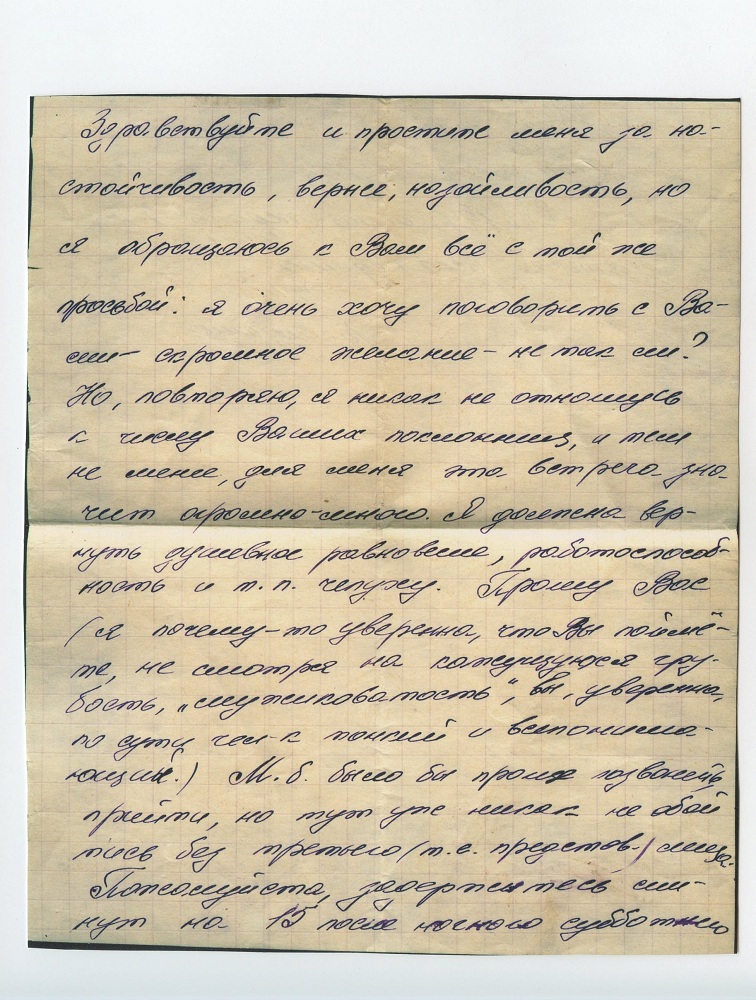 Здравствуйте и простите меня за на-
стойчивость, вернее, назойливость, но
я обращаюсь к Вам всё с той же
просьбой: я очень хочу поговорить с Ва-
ми – скромное желание – не так ли?
Но, повторяю, я никак не отношусь
к числу Ваших поклонниц, и тем
не менее, для меня эта встреча зна-
чит огромно-много. Я должна вер-
нуть душевное равновесие, работоспособ-
ность и т.п. чепуху. Прошу Вас
(я почему-то уверенна, что Вы поймё-
те, не смотря на кажущуюся гру-
бость, „мужиковатость“, Вы, уверенна,
по сути чел-к тонкий и всепонима-
ющий.) М.б. было бы проще позвонить,
прийти, но тут уже никак не обой
тись без третьего (т.е. представ.) лица.
Пожалуйста, задержитесь ми-
нут на 15 после ночного субботнего